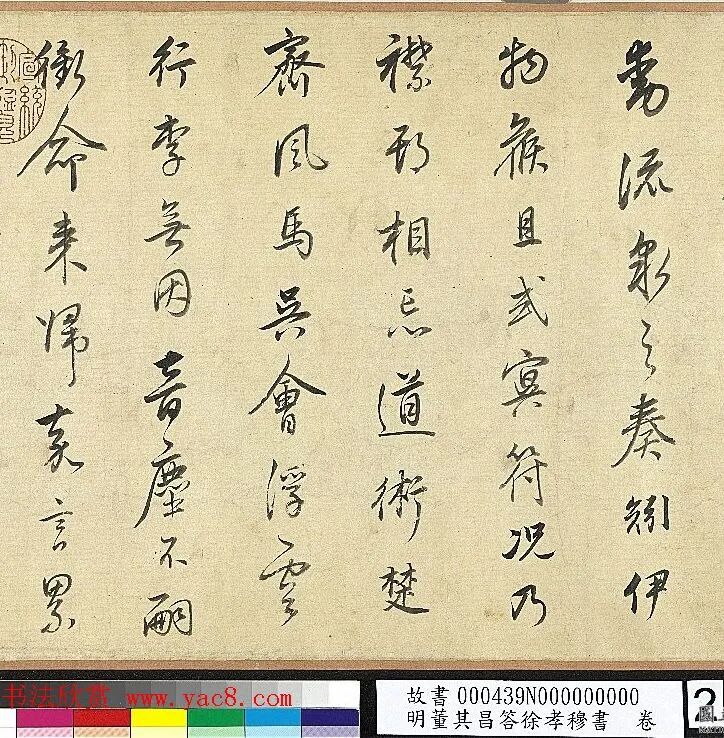 動流泉之奏矧伊
物候且或冥符况乃
襟期相忘道術楚
齊風馬吳會浮雲
行李無因音塵不嗣
銜命來歸嘉言累
书法欣赏 www.yac8.com
故書 000439N000000000
明董其昌答徐孝穆書 卷
2